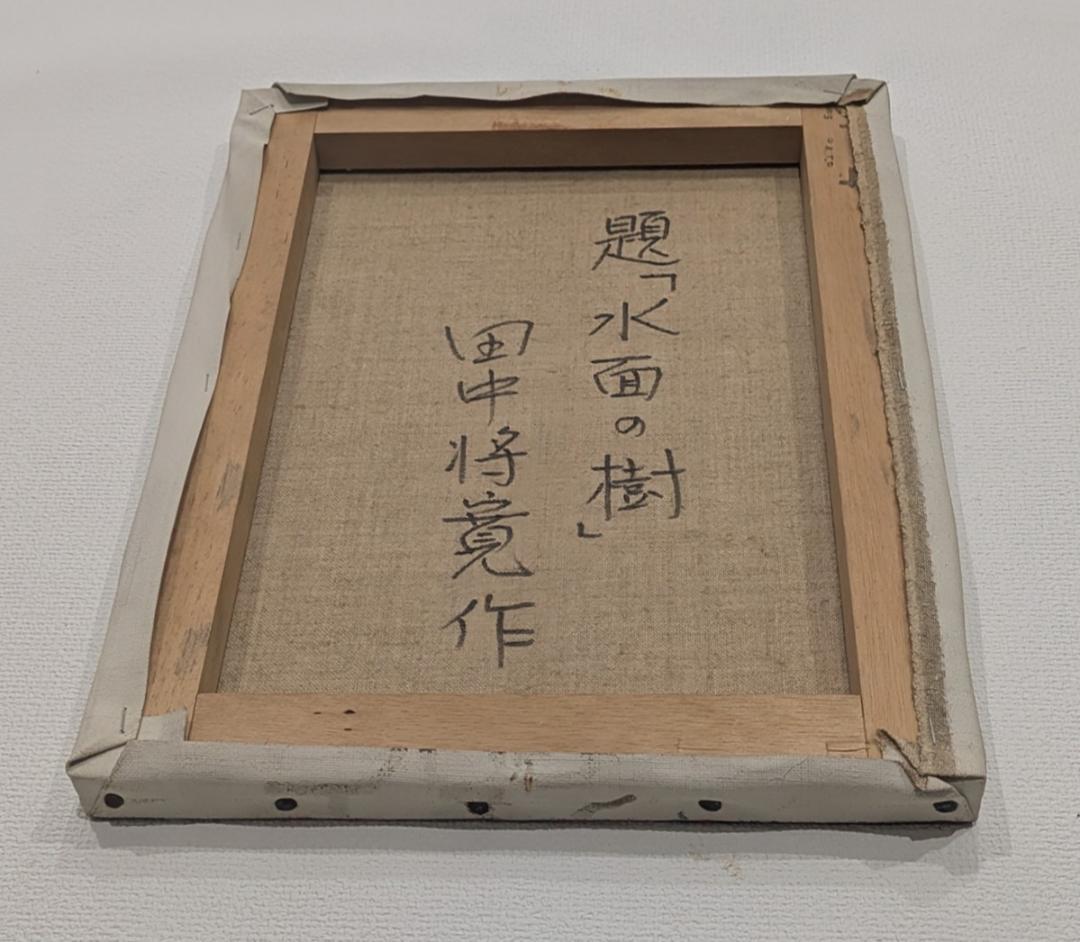 題「水面の樹」
田中将寛作